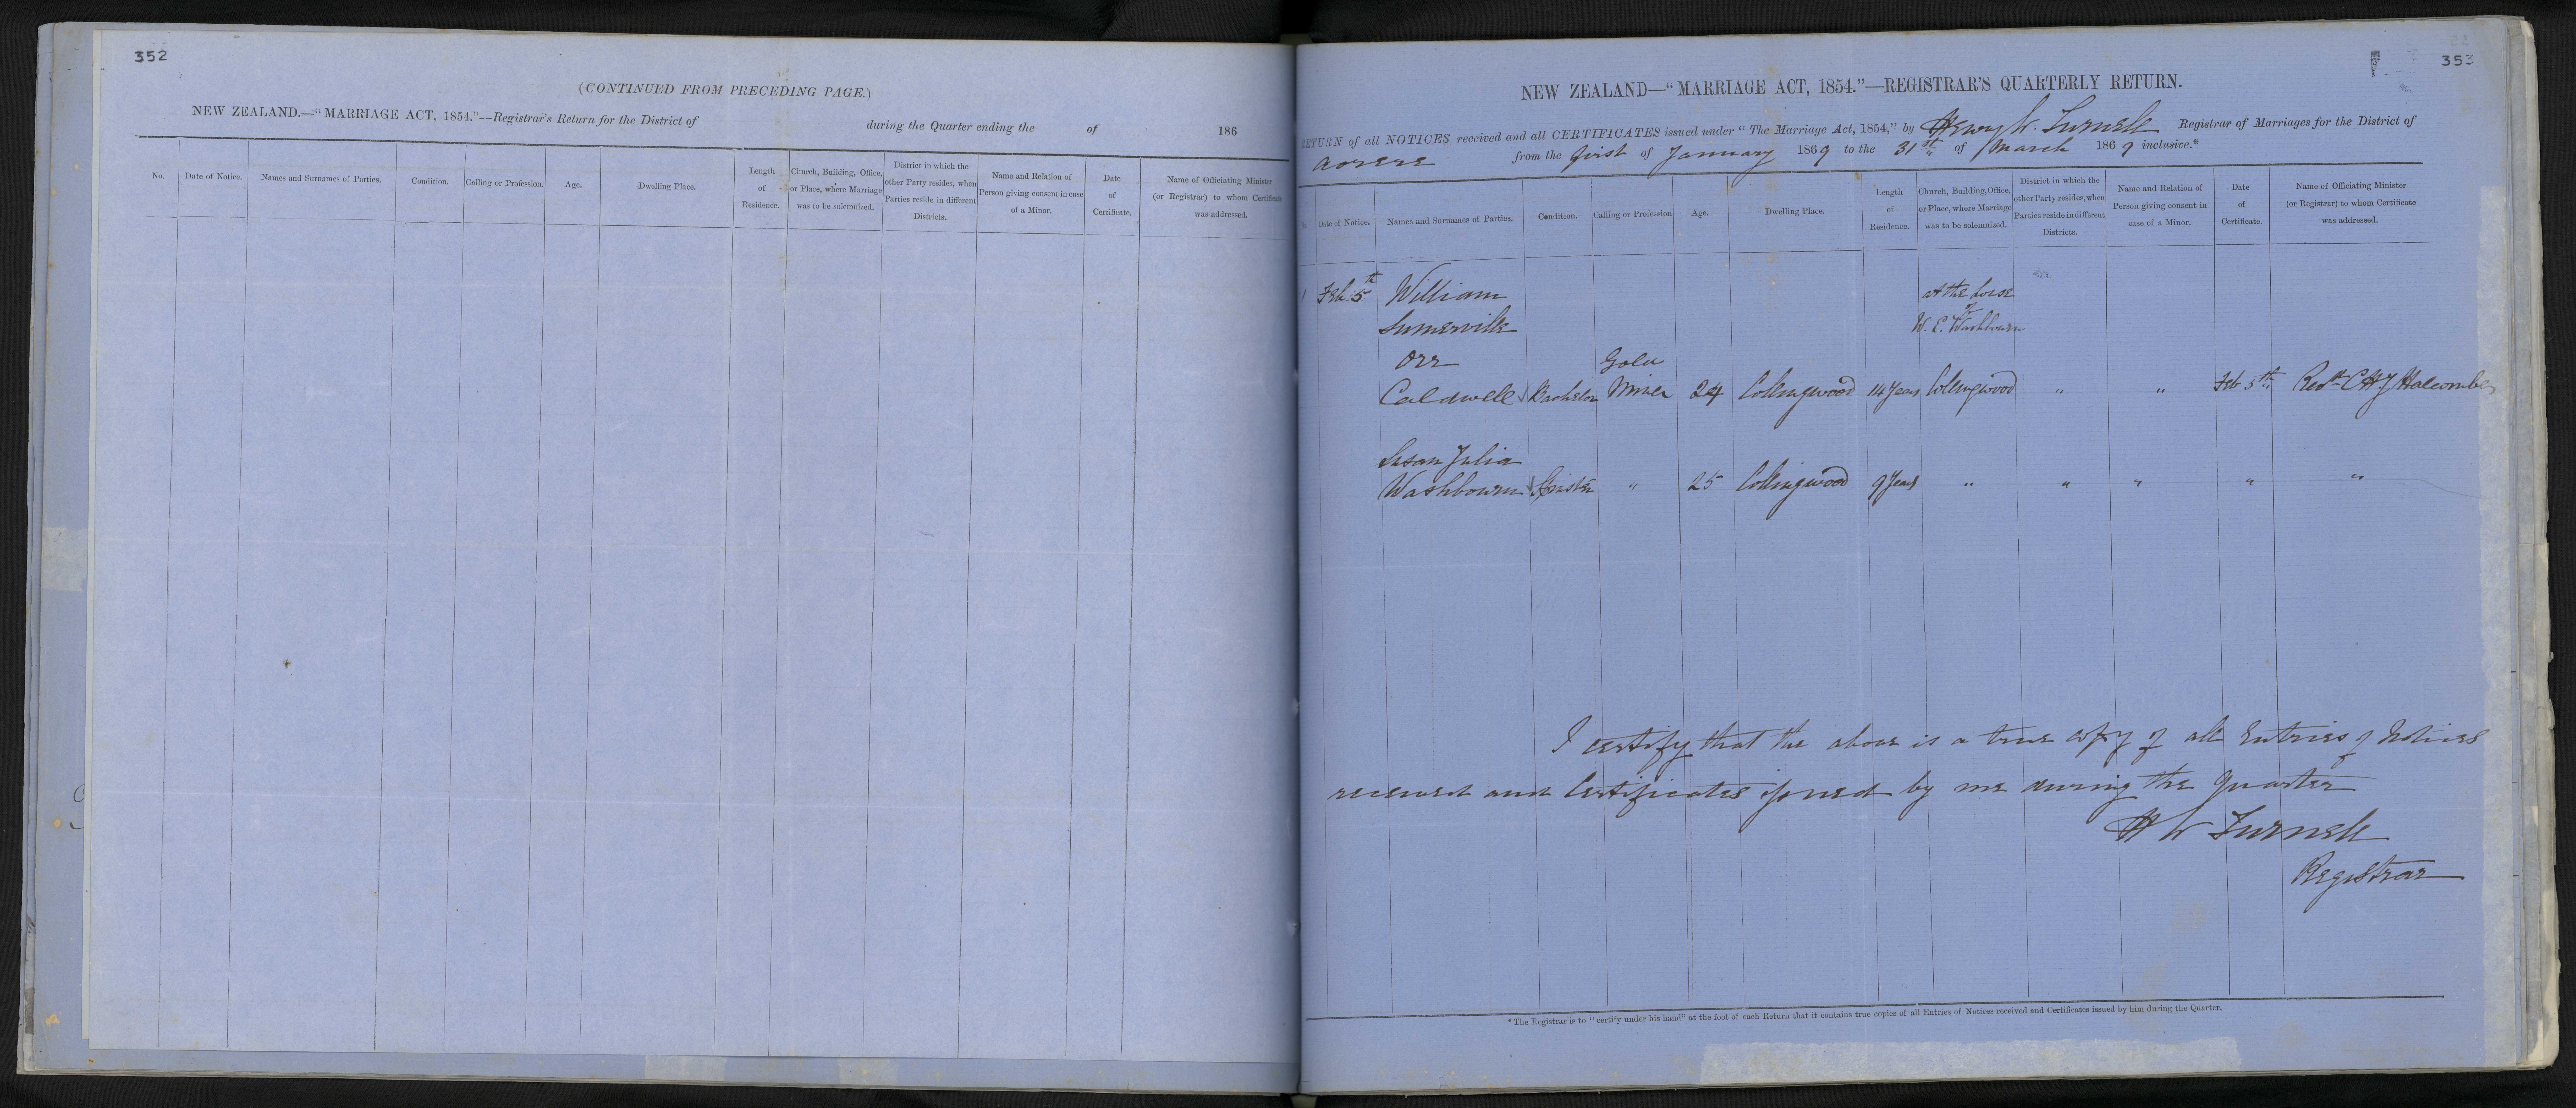 352
(CONTINUED FROM PRECEDING PAGE.)
NEW ZEALAND.—"MARRIAGE ACT, 1854."—Registrar's Return for the District of during the Quarter ending the of 186
No. Date of Notice. Names and Surnames of Parties. Condition. Calling or Profession. Age. Dwelling Place. Length of Residence. Church, Building, Office, or Place, where Marriage was to be solemnized. District in which the other Party resides, when Parties reside in different Districts. Name and Relation of Person giving consent in case of a Minor. Date of Certificate. Name of Officiating Minister (or Registrar) to whom Certificate was addressed.
353
NEW ZEALAND—"MARRIAGE ACT, 1854."—REGISTRAR'S QUARTERLY RETURN.
RETURN of all NOTICES received and all CERTIFICATES issued under "The Marriage Act, 1854," by Henry W. Turnell Registrar of Marriages for the District of
Aorere from the first of January 1869 to the 31st of March 1869 inclusive.*
Date of Notice. Names and Surnames of Parties. Condition. Calling or Profession Age. Dwelling Place. Length of Residence. Church, Building, Office, or Place, where Marriage was to be solemnized. District in which the other Party resides, when Parties reside in different Districts. Name and Relation of Person giving consent in case of a Minor. Date of Certificate. Name of Officiating Minister (or Registrar) to whom Certificate was addressed.
1 Feb. 5th William at the house
Sumerville of W. C. Washbourn
Orr Gold
Caldwell Bachelor Miner 24 Collingwood 14 Years Collingwood " " Feb 5th Revd C H J Halcombe
Susan Julia
Washbourn Spinster " 25 Collingwood 9 Years " " " " "
I certify that the above is a true copy of all Entries of Notices
received and Certificates issued by me during the Quarter
H W Turnell
Registrar
*The Registrar is to "certify under his hand" at the foot of each Return that it contains true copies of all Entries of Notices received and Certificates issued by him during the Quarter.